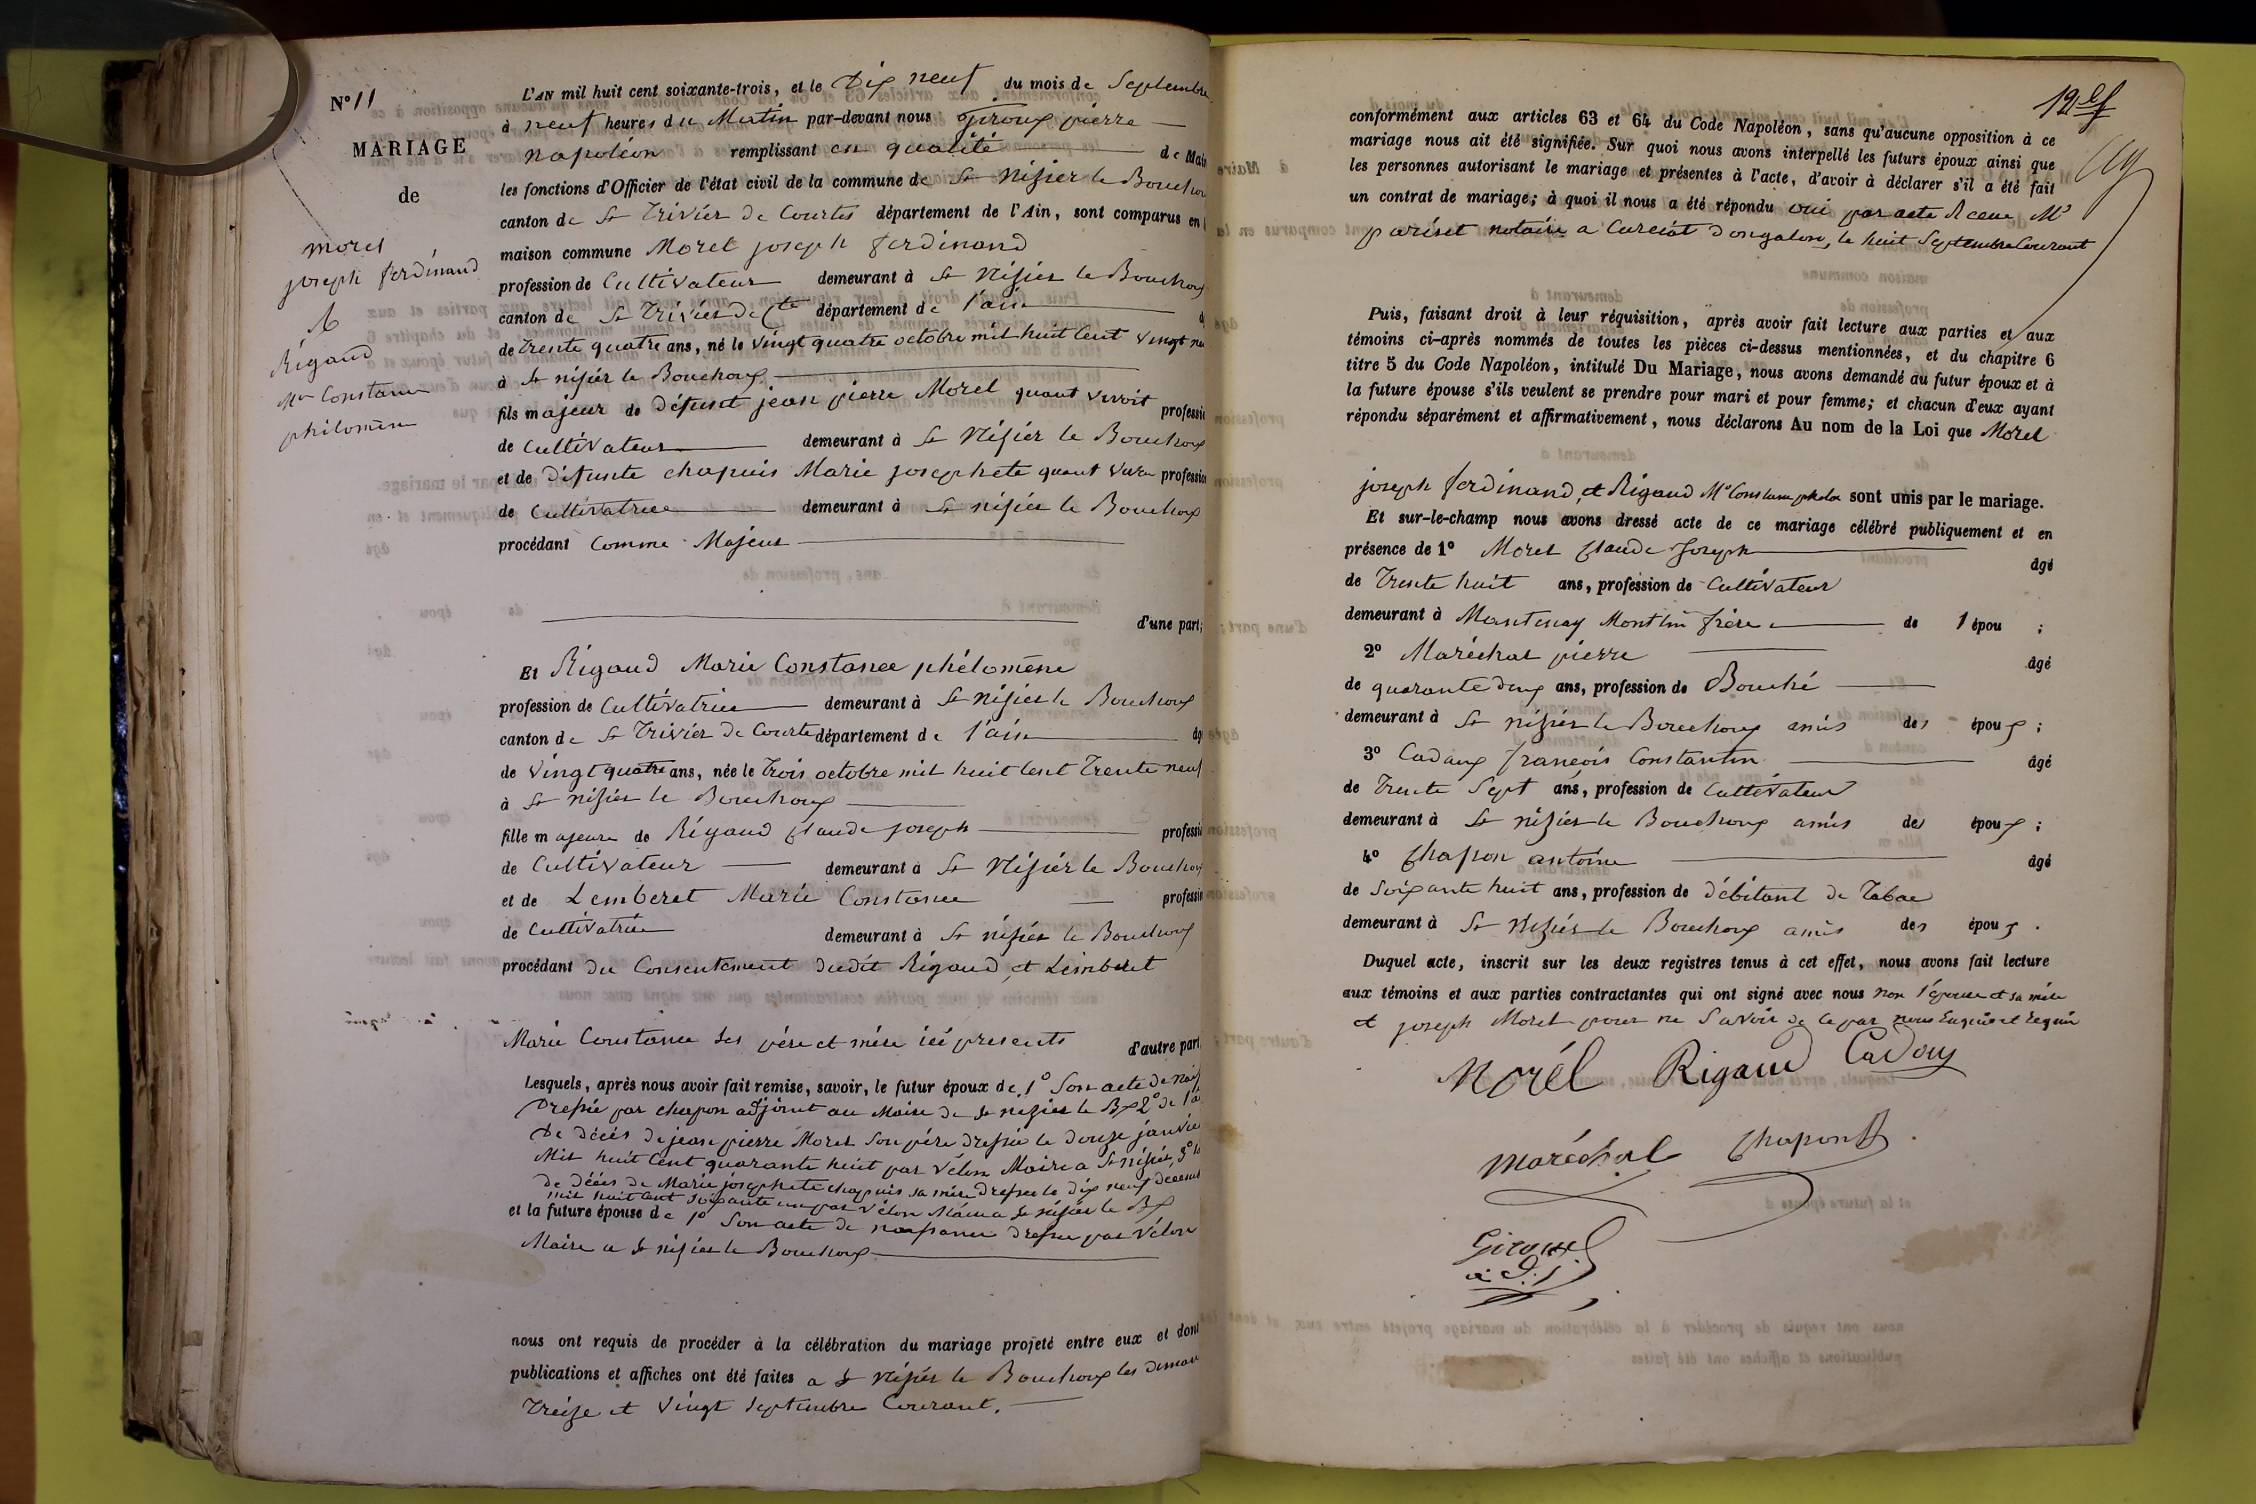 N° 11
MARIAGE
de
morel
joseph ferdinand
&
Rigaud
Mie Constance
philomène
L'AN mil huit cent soixante-trois, et le Dix neuf du mois de Septembre
à neuf heures du Matin par-devant nous Giroux pierre
napoléon remplissant en qualité de Mai
les fonctions d'Officier de l'état civil de la commune de St Nizier le Bouchou
canton de St Trivier de Courtes département de l'Ain, sont comparus en
maison commune Morel joseph ferdinand
profession de Cultivateur demeurant à St Nizier le Bouchoux
canton de St Trivier de Cte département de l'ain
de trente quatre ans, né le vingt quatre octobre mil huit Cent vingt
à St nizier le Bouchoux
fils majeur de Défunt jean pierre Morel quant vivoit professi
de Cultivateur demeurant à St Nizier le Bouchoux
et de défunte chapuis Marie josephete quant vivoi profession
de Cultivatrice demeurant à St nizier le Bouchoux
procédant Comme Majeur
d'une part;
Et Rigaud Marie Constance phélomène
profession de Cultivatrice demeurant à St Nizier le Bouchoux
canton de St Trivier de Courtes département de l'ain âg
de vingt quatre ans, née le trois octobre mil huit Cent Trente neuf
à St nizier le Bouchoux
fille majeure de Rigaud Claude joseph professi
de Cultivateur demeurant à St Nizier le Bouchoux
et de Lemberet Marie Constance professi
de Cultivatrice demeurant à St nizier le Bouchoux
procédant du Consentement dudit Rigaud, et Limberet
Marie Constance Ses père et mère ici presents d'autre part
Lesquels, après nous avoir fait remise, savoir, le futur époux de 1° Son acte de nais
Dressé par chapon adjoint au Maire de St nizier le Bx 2° de l'a
De décés de jean pierre Morel Son père dressé le douze janvier
Mil huit Cent quarante huit par Vélon Maire a St nizier, 3°
de décés de Marie josephete chapuis sa mère dressé le dix neuf décemb
mil huit cent soixante un par Vélon Maire a St nizier le Bx
et la future épouse de 1° Son acte de naissance dressé par Vélon
Maire a St nizier le Bouchoux
nous ont requis de procéder à la célébration du mariage projeté entre eux et dont
publications et affiches ont été faites a St Nizier le Bouchoux les diman
Treize et vingt Septembre Courant.
12 
conformément aux articles 63 et 64 du Code Napoléon, sans qu'aucune opposition à ce
mariage nous ait été signifiée. Sur quoi nous avons interpellé les futurs époux ainsi que
les personnes autorisant le mariage et présentes à l'acte, d'avoir à déclarer s'il a été fait
un contrat de mariage; à quoi il nous a été répondu oui par acte Recu Me
pariset notaire a Curciat Dongalon, le huit Septembre Courant
Puis, faisant droit à leur réquisition, après avoir fait lecture aux parties et aux
témoins ci-après nommés de toutes les pièces ci-dessus mentionnées, et du chapitre 6
titre 5 du Code Napoléon, intitulé Du Mariage, nous avons demandé au futur époux et à
la future épouse s'ils veulent se prendre pour mari et pour femme; et chacun d'eux ayant
répondu séparément et affirmativement, nous déclarons Au nom de la Loi que Morel
joseph ferdinand, et Rigaud Mie Constance sont unis par le mariage.
Et sur-le-champ nous avons dressé acte de ce mariage célébré publiquement et en
présence de 1° Morel Claude Joseph âgé
de Trente huit ans, profession de Cultivateur
demeurant à Mantenay Montlin frère de l épou ;
2° Maréchal pierre âgé
de quarante deux ans, profession de Bouché
demeurant à St nizier le Bouchoux amis des époux ;
3° Cadoux françois Constantin âgé
de Trente Sept ans, profession de Cultivateur
demeurant à St nizier le Bouchoux amis des époux ;
4° Chapon antoine âgé
de Soixante huit ans, profession de débitant de Tabac
demeurant à St Nizier le Bouchoux amis des époux .
Duquel acte, inscrit sur les deux registres tenus à cet effet, nous avons fait lecture
aux témoins et aux parties contractantes qui ont signé avec nous non l'épouse et sa mère
et joseph Morel pour ne Savoir de ce par nous Enquis et Requis
Morél Rigaud Cadoux
Maréchal Chapon
Giroux